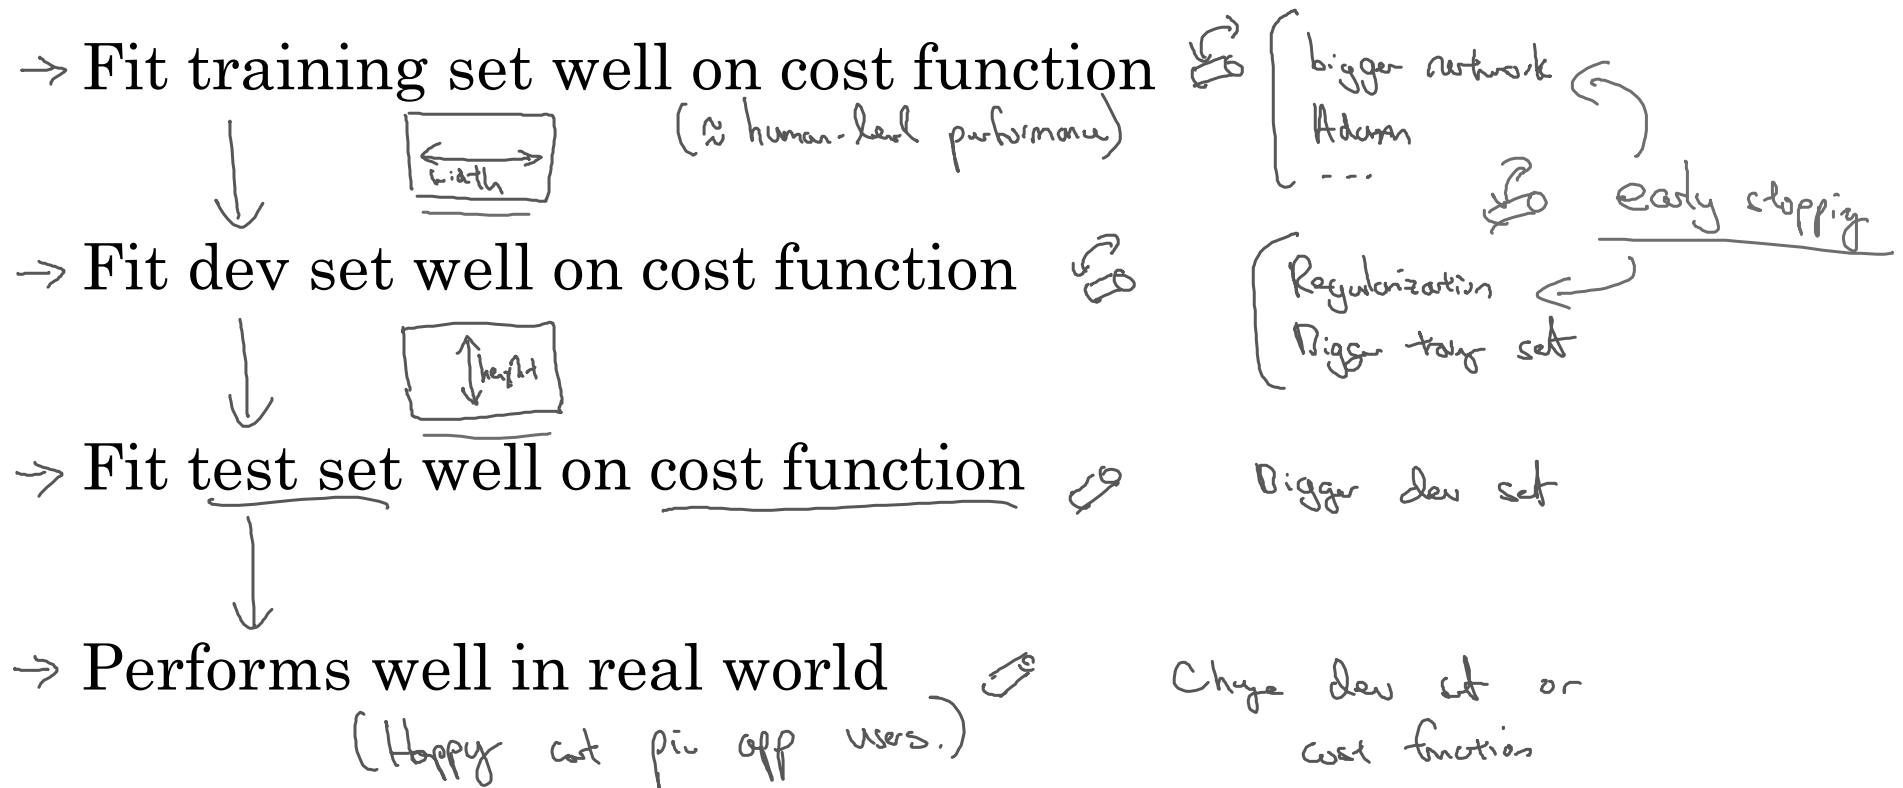 → Fit training set well on cost function
(≈ human-level performance)
bigger network
Adam
...
width
early stopping
→ Fit dev set well on cost function
Regularization
Bigger trainig set
height
→ Fit test set well on cost function
Bigger dev set
→ Performs well in real world
(Happy cat pic app users.)
Change dev set or
cost function